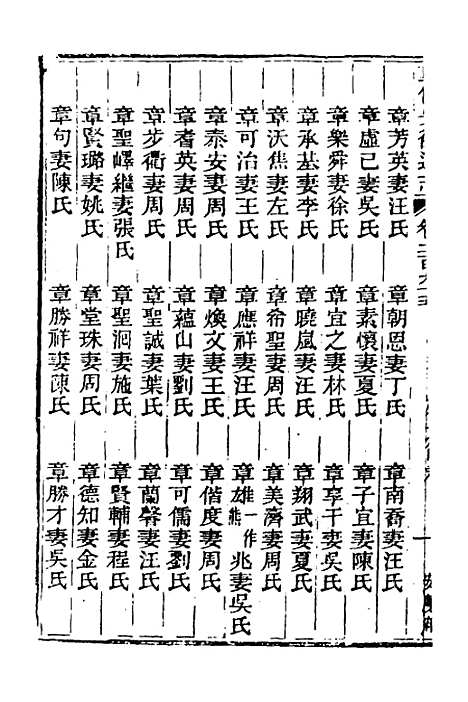 章芳英妻汪氏　章朝恩妻丁氏　章南喬妻汪氏
章虛己妻吳氏　章素懷妻夏氏　章子宜妻陳氏
章樂舜妻徐氏　章宜之妻林氏　章享千妻吳氏
章承基妻李氏　章曉嵐妻汪氏　章翔武妻夏氏
章沃焦妻左氏　章希聖妻周氏　章美濟妻周氏
章可治妻王氏　章應祥妻汪氏　章雄一作熊兆妻吳氏
章泰安妻周氏　章煥文妻王氏　章偕度妻周氏
章耆英妻周氏　章蘊山妻劉氏　章可儒妻劉氏
章步衢妻周氏　章聖誠妻葉氏　章蘭馨妻汪氏
章聖嶧繼妻張氏　章聖泂妻施氏　章賢輔妻程氏
章賢璐妻姚氏　章堂珠妻周氏　章德知妻金氏
章句妻陳氏　章勝祥妻陳氏　章勝才妻吳氏